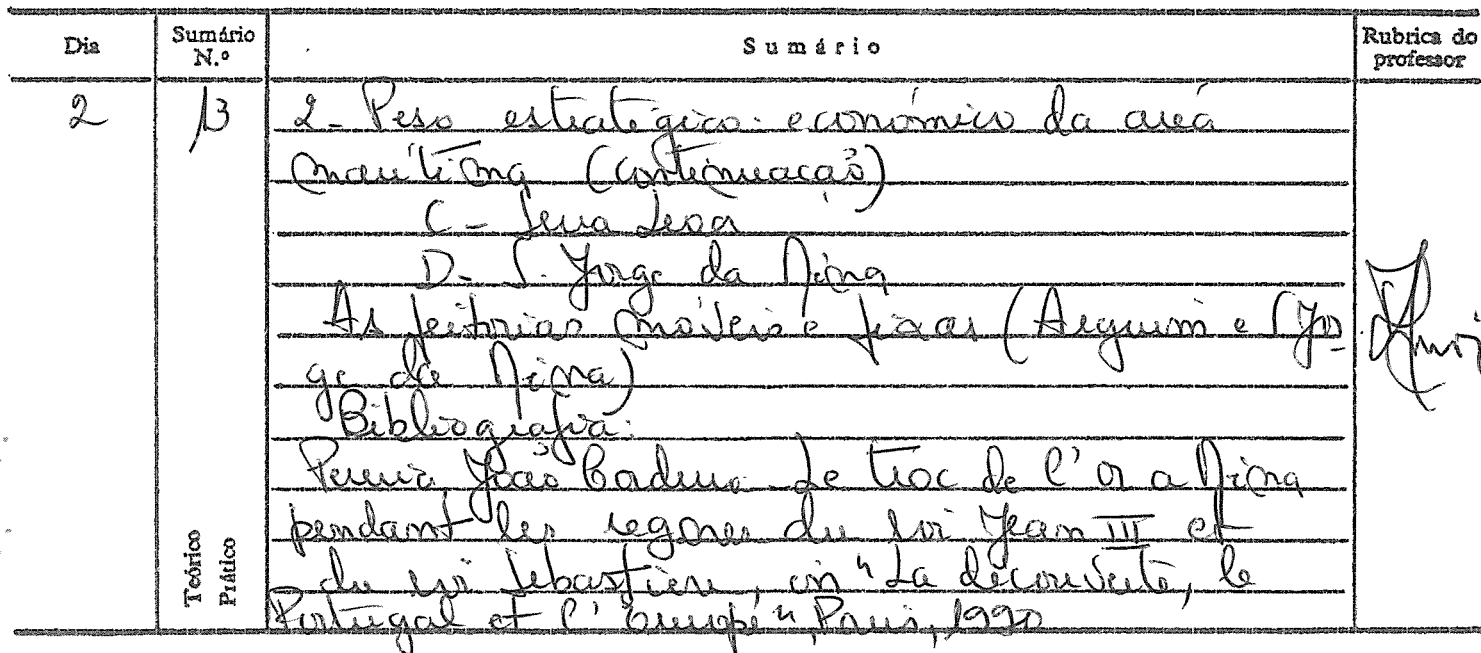 Dia Sumário N.º Sumário Rubrica do professor
2 13 2- Peso estratégico-económico da área
marítima (continuação)
C - Serra Leoa
D- S. Jorge da Mina
As feitorias móveis e fixas (Arguim e S. Jor-
ge da Mina)
Bibliografia:
Pereira João Cordeiro - Le troc de l'or a Mina
pendant les regnes du roi Jean III et
du roi Sebastien, in "La découverte, le
Portugal et l'Europe", Paris, 1990
Teórico
Prático